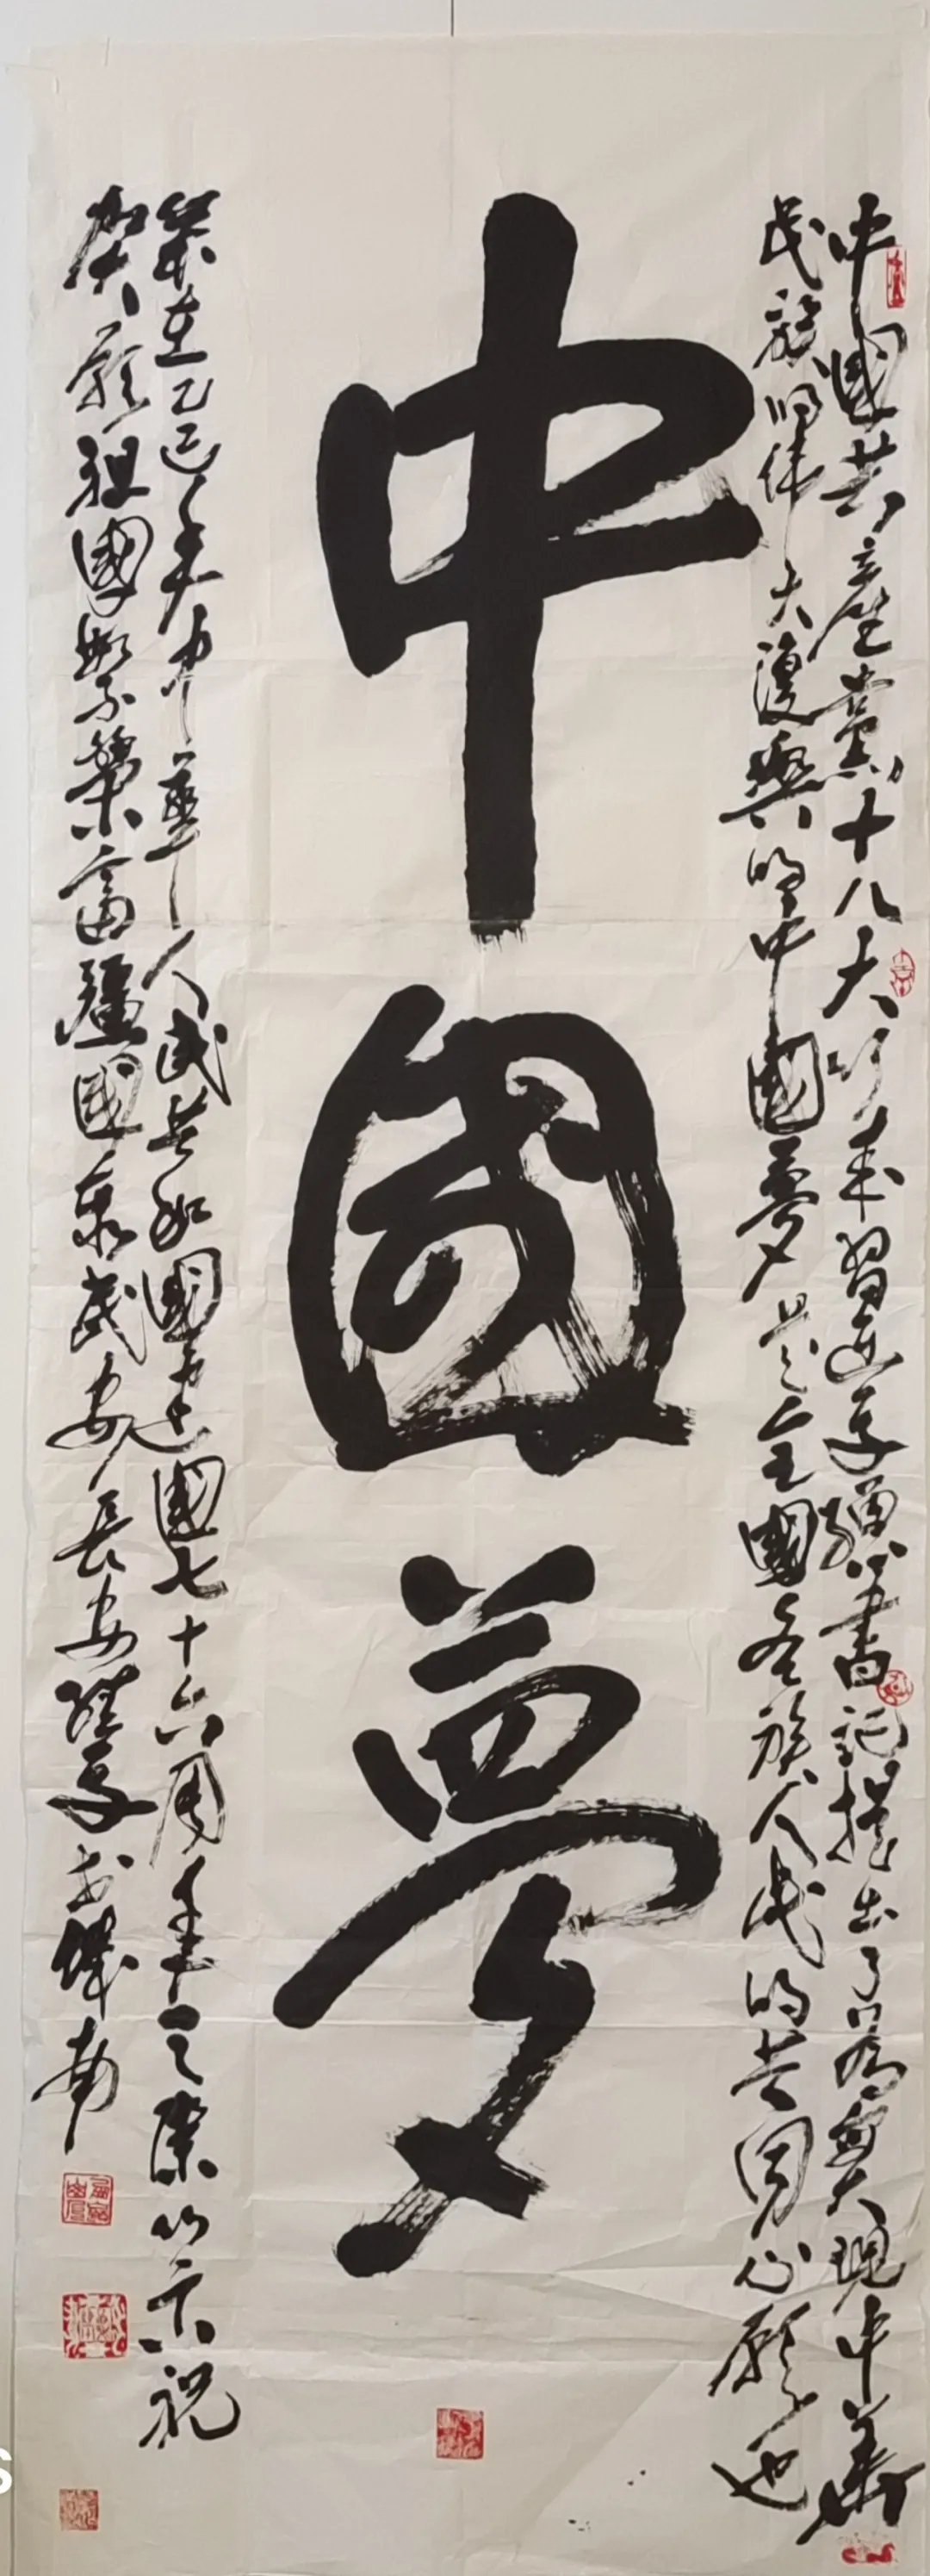 中國共產黨十八大以來習近平總書記提出了爲實現中華
民族的偉大復興的中國夢是全國各族人民的共同心願也
中國夢
歲在乙巳年中華人民共和國建國七十六周年之際以示祝
賀願祖國繁榮富强國泰民安長安